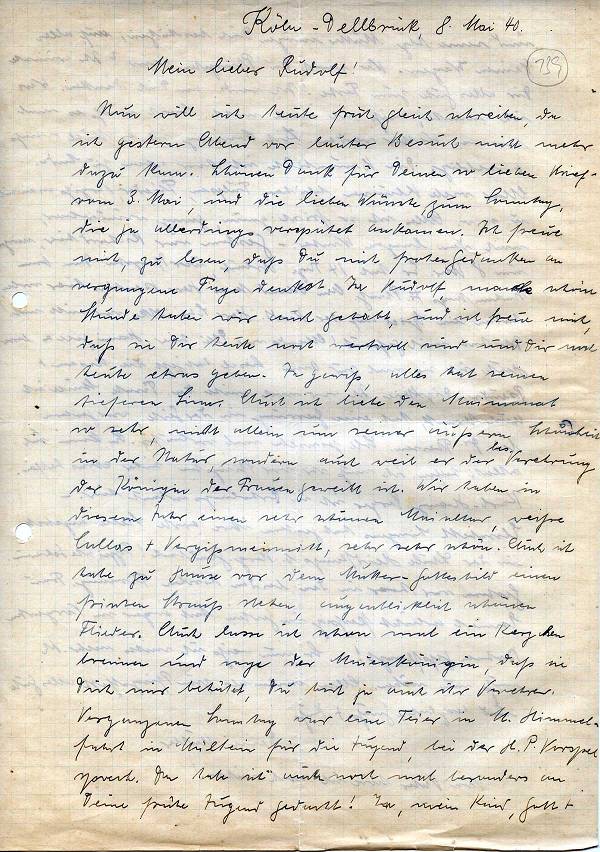 Köln-Dellbrück, 8. Mai 40.
139
Mein lieber Rudolf!
Nun will ich heute früh gleich schreiben, da
ich gestern Abend vor lauter Besuch nicht mehr
dazu kam. Schönen Dank für Deinen so lieben Brief
vom 3. Mai, und die lieben Wünsche zum Sonntag,
die ja allerdings verspätet ankamen. Ich freue
mich, zu lesen, daß Du mit frohen Gedanken an
vergangene Tage denkst. Ja Rudolf, manch schöne
Stunde haben wir auch gehabt, und ich freue mich,
daß sie Dir heute noch wertvoll sind und Dir noch
heute etwas geben. Ja gewiß, alles hat seinen
tieferen Sinn. Auch ich liebe den Maimonat
so sehr, nicht allein um seiner äußern Schönheit
in der Natur, sondern auch weil er der bes. Verehrung
der Königin der Frauen geweiht ist. Wir haben in
diesem Jahr einen sehr schönen Maialtar, weiße
Callas + Vergißmeinnicht, sehr sehr schön. Auch ich
habe zu Hause vor dem Mutter-Gottesbild einen
frischen Strauß stehen, augenblicklich schönen
Flieder. Auch lasse ich schon mal ein Kerzchen
brennen und sage der Maienkönigin, daß sie
Dich mir behütet, Du bist ja auch ihr Verehrer.
Vergangenen Sonntag war eine Feier in M. Himmel-
fahrt in für die Jugend, bei der H. P.
sprach. Da habe ich auch noch mal besonders an
Deine frühe Jugend gedacht! Ja, mein Kind, Gott +